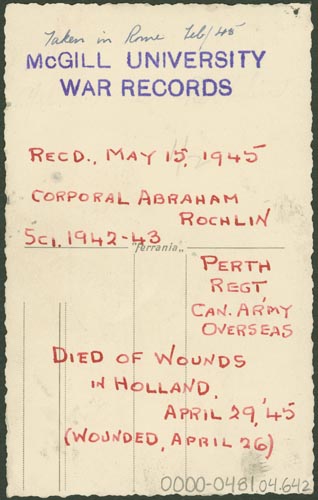 Taken in Rome Feb/45
McGILL UNIVERSITY
WAR RECORDS
RECD., MAY 15, 1945
CORPORAL ABRAHAM
ROCHLIN
SCI. 1942-43
"ferrania"
PERTH
REGT
CAN. ARMY
OVERSEAS
DIED OF WOUNDS
IN HOLLAND,
APRIL 29, '45
(WOUNDED, APRIL 26)
0000-0481.04.642